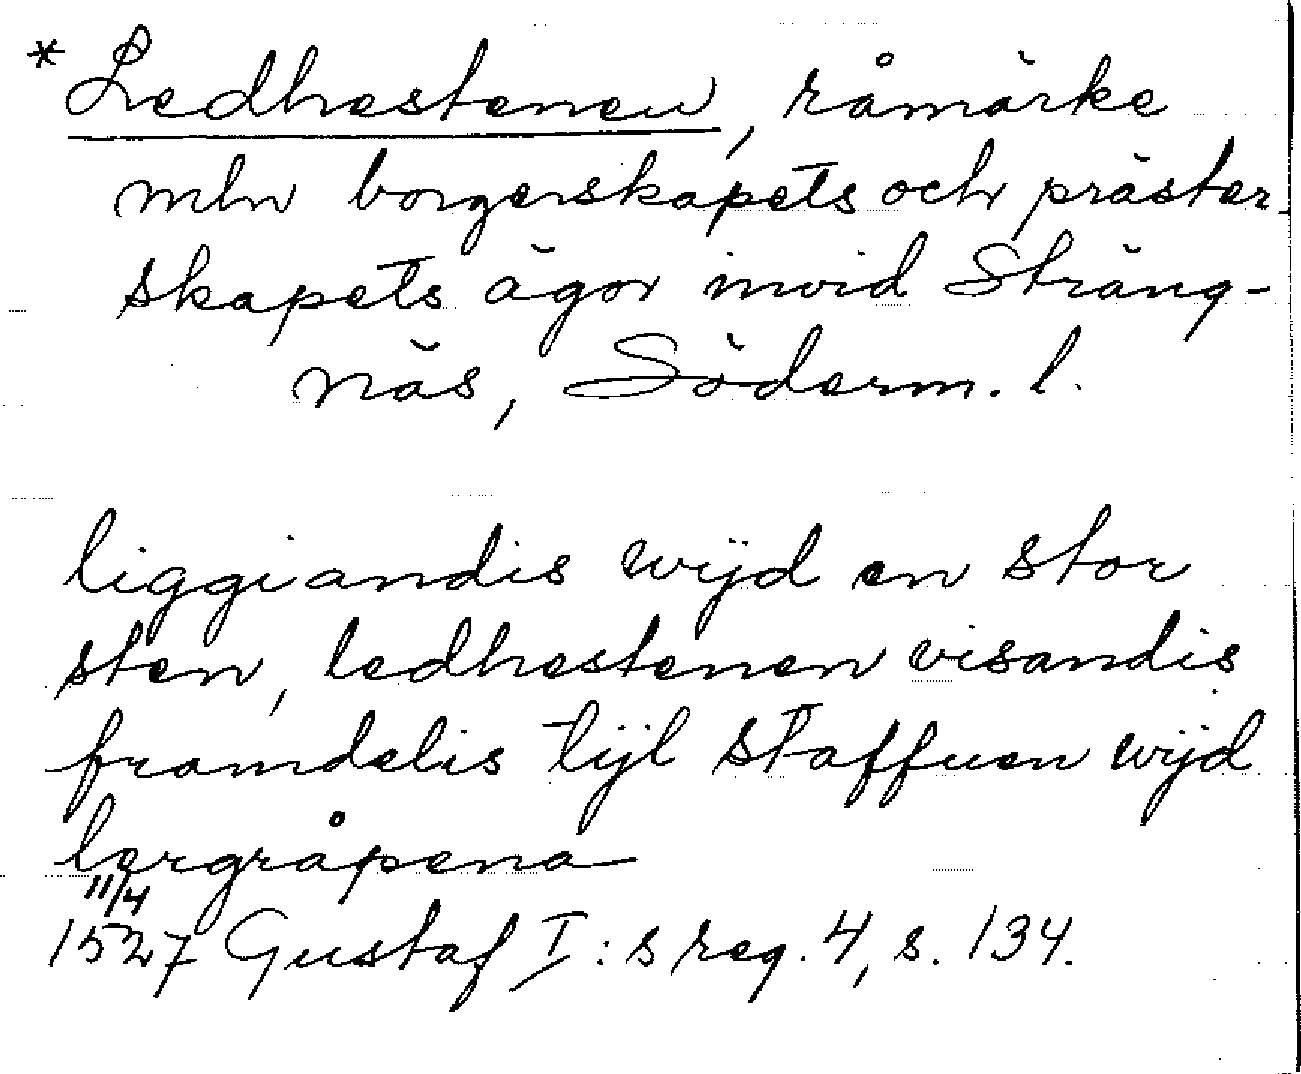 * Ledhestenen, råmärke
mln borgerskapets och präster-
skapets ägor invid Sträng-
näs, Söderm. l.
liggiandis wijd en stor
sten, ledhestenen visandis
framdelis tijl staffuen wijd
lergråpena
11/4
1527 Gustaf I:s reg. 4, s. 134.